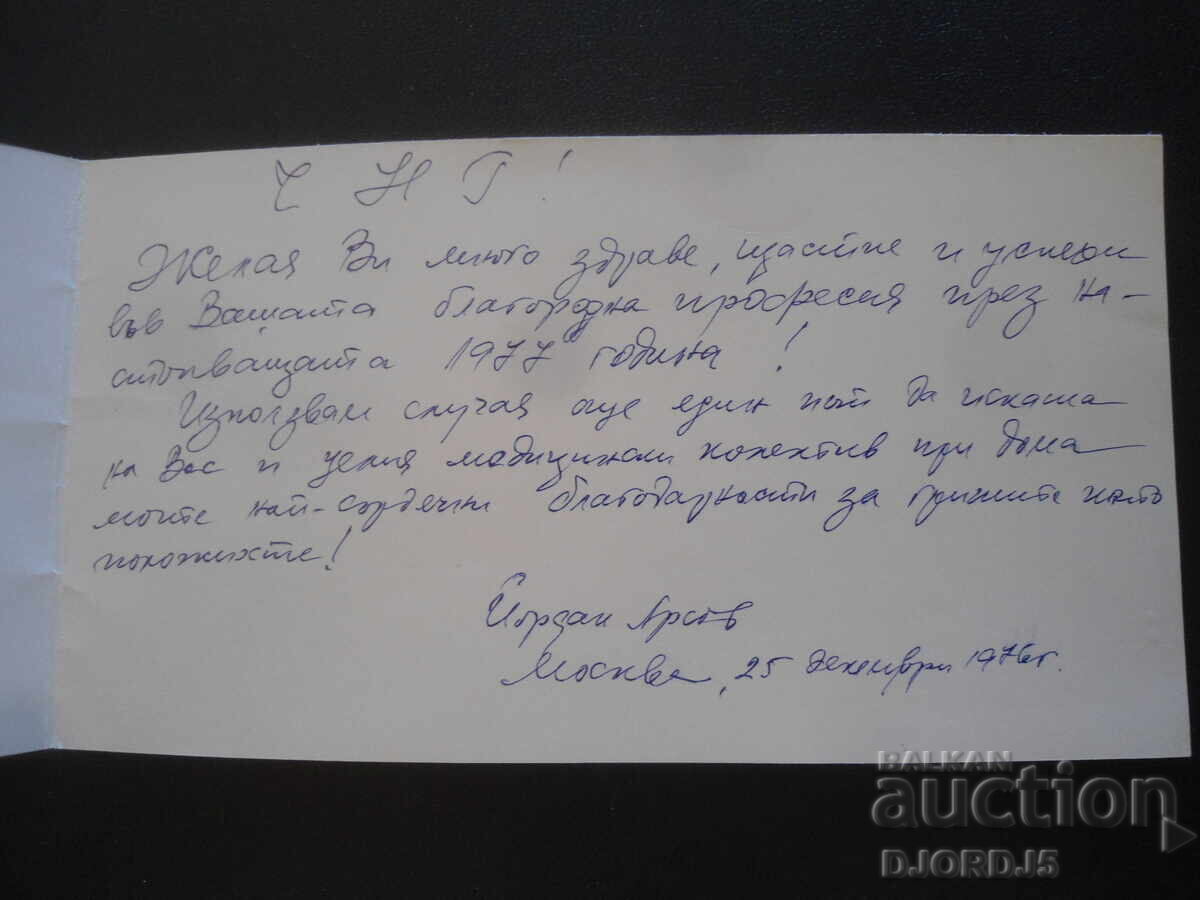 Ч Н Г !
Желая Ви много здраве, щастие и успехи
във Вашата благородна професия през на-
стъпващата 1977 година !
Използвам случая още един път да искажа
на Вас и целия медицински колектив при дома
моите най-сърдечни благодарности за грижите които
положихте!
Йордан Арсов
Москва, 25 декември 1976 г.
BALKAN
auction
DJORDJ5